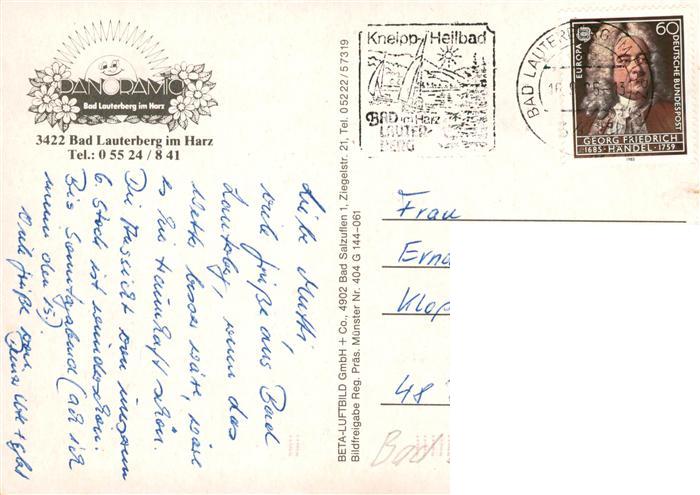 PANORAMIC
Bad Lauterberg im Harz
3422 Bad Lauterberg im Harz
Tel.: 0 55 24 / 8 41
Liebe Mutti,
viele Grüße aus Bad
Lautbg, wenn das
Wetter besser wäre, wäre
es hier traumhaft schön.
Die Aussicht von unserem
6. Stock ist wunderschön.
Bis Sonntagabend
den 15.)
Viele Grüße von
BETA-LUFTBILD GmbH + Co., 4902 Bad Salzuflen 1, Ziegelstr. 21, Tel. 05222/57319
Bildfreigabe Reg. Präs. Münster Nr. 404 G 144-061
Kneipp-Heilbad
BAD im Harz
LAUTER-
BERG
BAD LAUTERBERG IM
EUROPA
60
DEUTSCHE BUNDESPOST
GEORG FRIEDRICH
1685 · HÄNDEL · 1759
1985
Frau
Erna
Klop
48
Bad